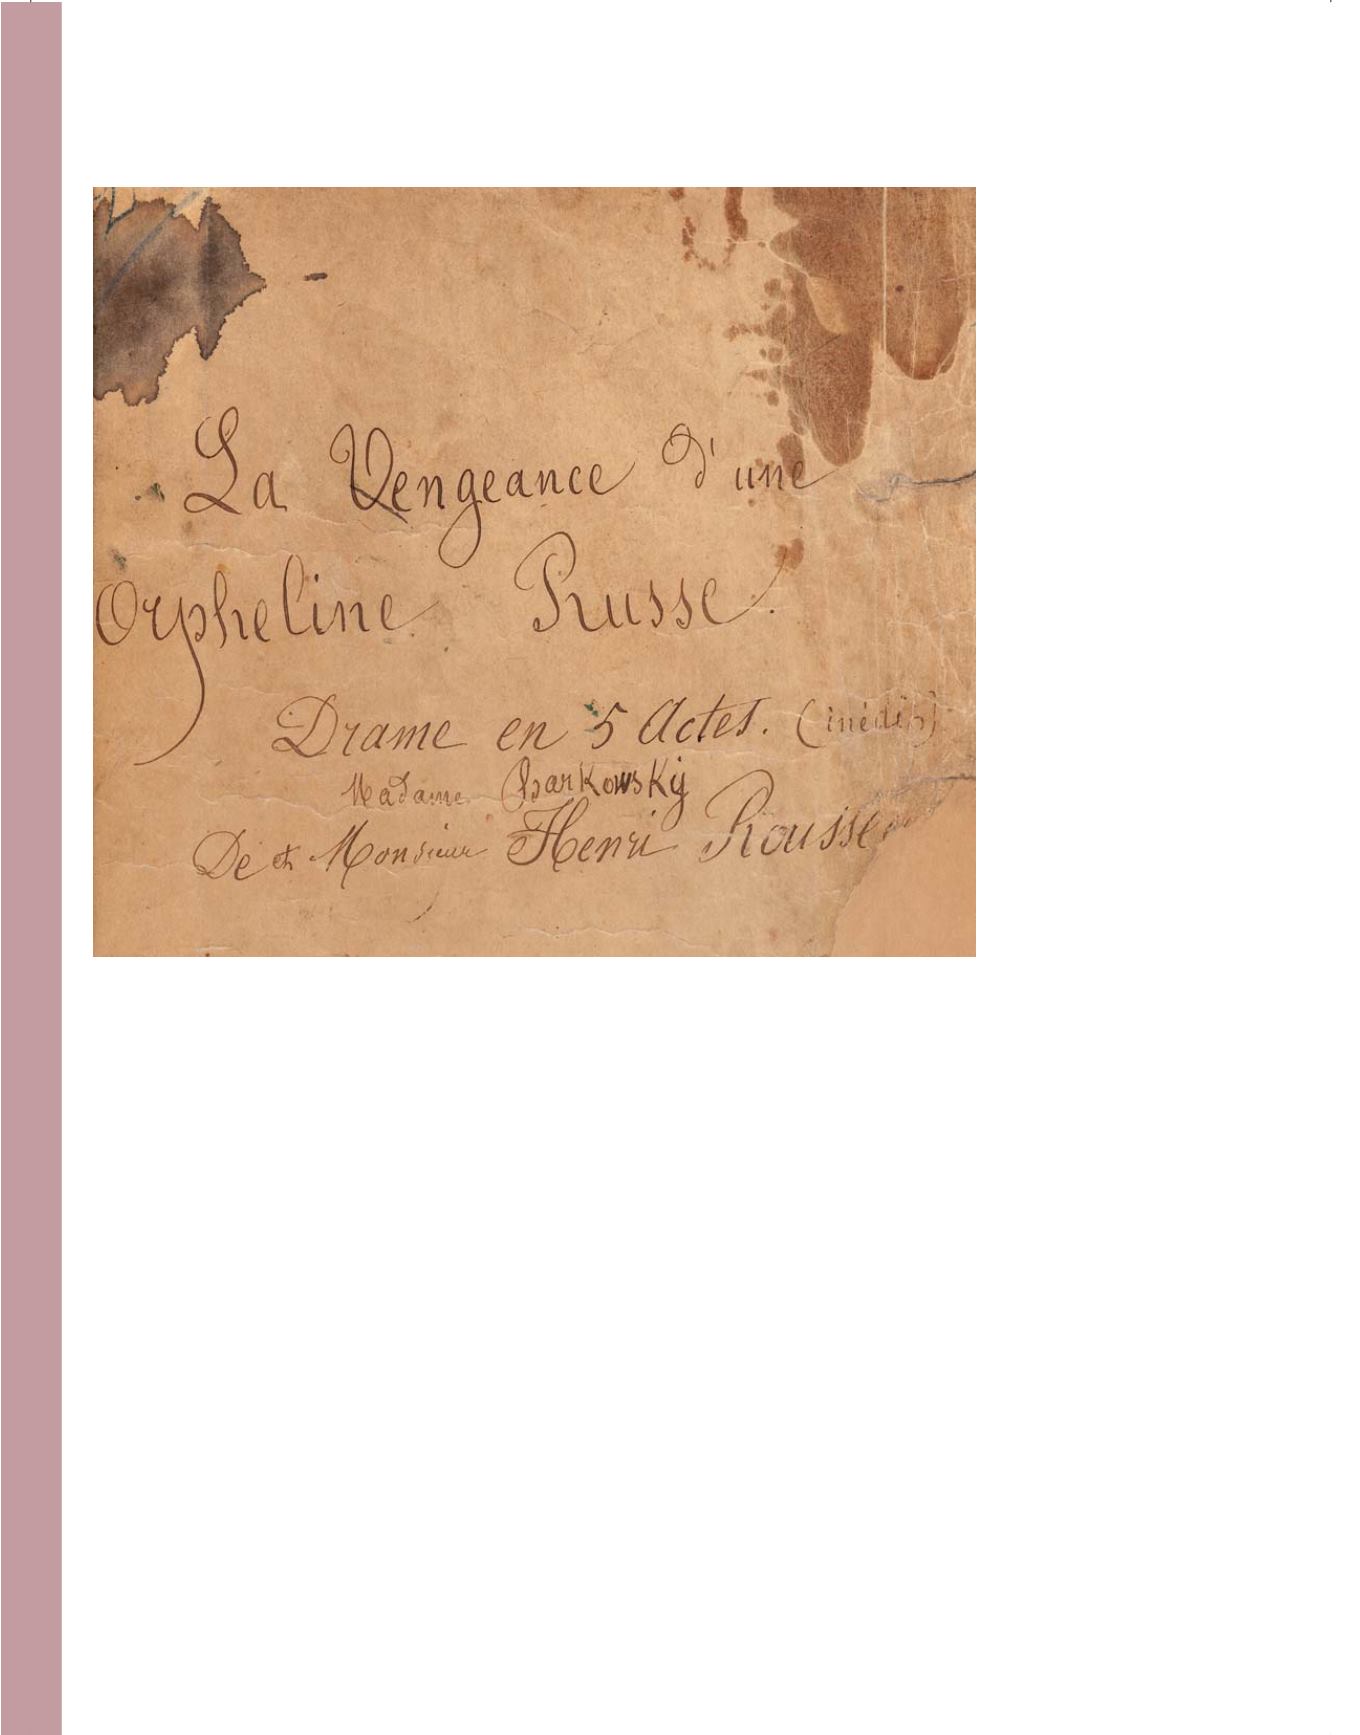 La Vengeance d'une
Orpheline Russe.
Drame en 5 Actes. (inédit)
Madame Barkowsky
De et Monsieur Henri Rousse